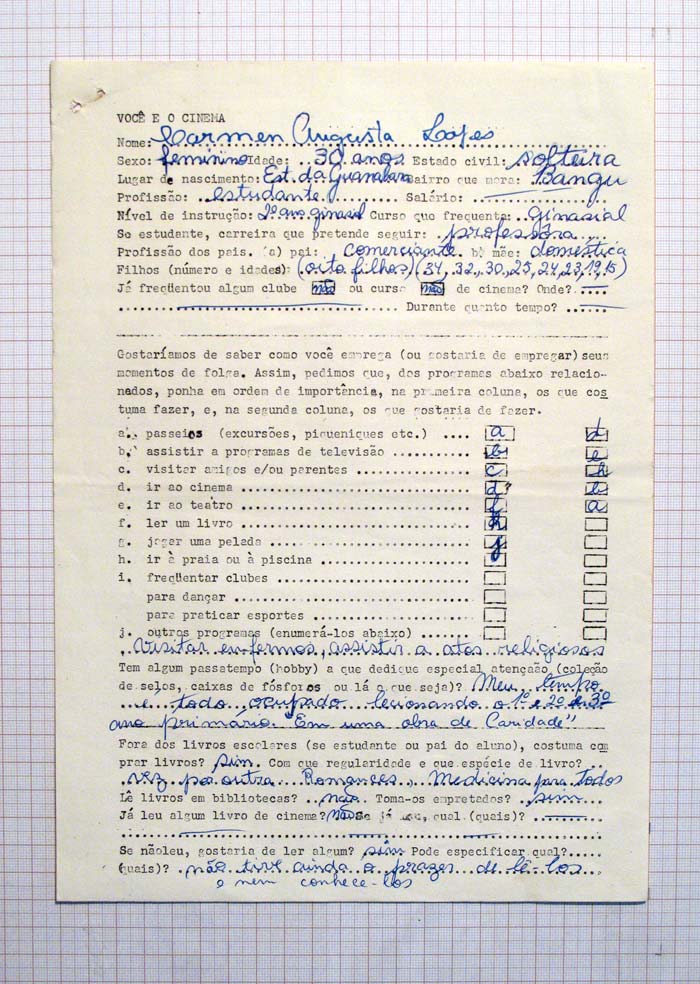 VOCÊ E O CINEMA
Nome: Carmen Augusta Lopes
Sexo: feminino Idade: 30 anos Estado civil: solteira
Lugar de nascimento: Est. da Guanabara Bairro que mora: Bangu
Profissão: estudante Salário:
Nível de instrução: 2º ano ginasial Curso que frequenta: ginasial
Se estudante, carreira que pretende seguir: professôra
Profissão dos pais. (a) pai: comerciante b) mãe: doméstica
Filhos (número e idades): (oito filhos) (34, 32, 30, 25, 24, 23, 19, 15)
Já freqüentou algum clube não ou curso não de cinema? Onde?
Durante quanto tempo?
Gostaríamos de saber como você emprega (ou gostaria de empregar) seus
momentos de folga. Assim, pedimos que, dos programas abaixo relacio-
nados, ponha em ordem de importância, na primeira coluna, os que cos
tuma fazer, e, na segunda coluna, os que gostaria de fazer.
a. passeios (excursões, piqueniques etc.) .... a d
b. assistir a programas de televisão ........... b e
c. visitar amigos e/ou parentes ................ c h
d. ir ao cinema ................................ d? b
e. ir ao teatro ................................ f a
f. ler um livro ................................ h
g. jogar uma pelada ............................ j
h. ir à praia ou à piscina .....................
i. freqüentar clubes
para dançar .................................
para praticar esportes ......................
j. outros programas (enumerá-los abaixo) .......
Visitar enfermos, assistir a atos religiosos
Tem algum passatempo (hobby) a que dedique especial atençaão (coleção
de selos, caixas de fósforos ou lá o que seja)? Meu tempo
é todo ocupado lecionando o 1º e 2º e 3º
ano primário. "Em uma obra de Caridade"
Fora dos livros escolares (se estudante ou pai do aluno), costuma com
prar livros? sim. Com que regularidade e que espécie de livro?
vez por outra Romances, Medicina para todos
Lê livros em bibliotecas? não Toma-os empretados? sim
Já leu algum livro de cinema? não Se já leu, qual (quais)?
Se nãoleu, gostaria de ler algum? sim Pode especificar qual?
(quais)? não tive ainda o prazer de lê-los
e nem conhece-los